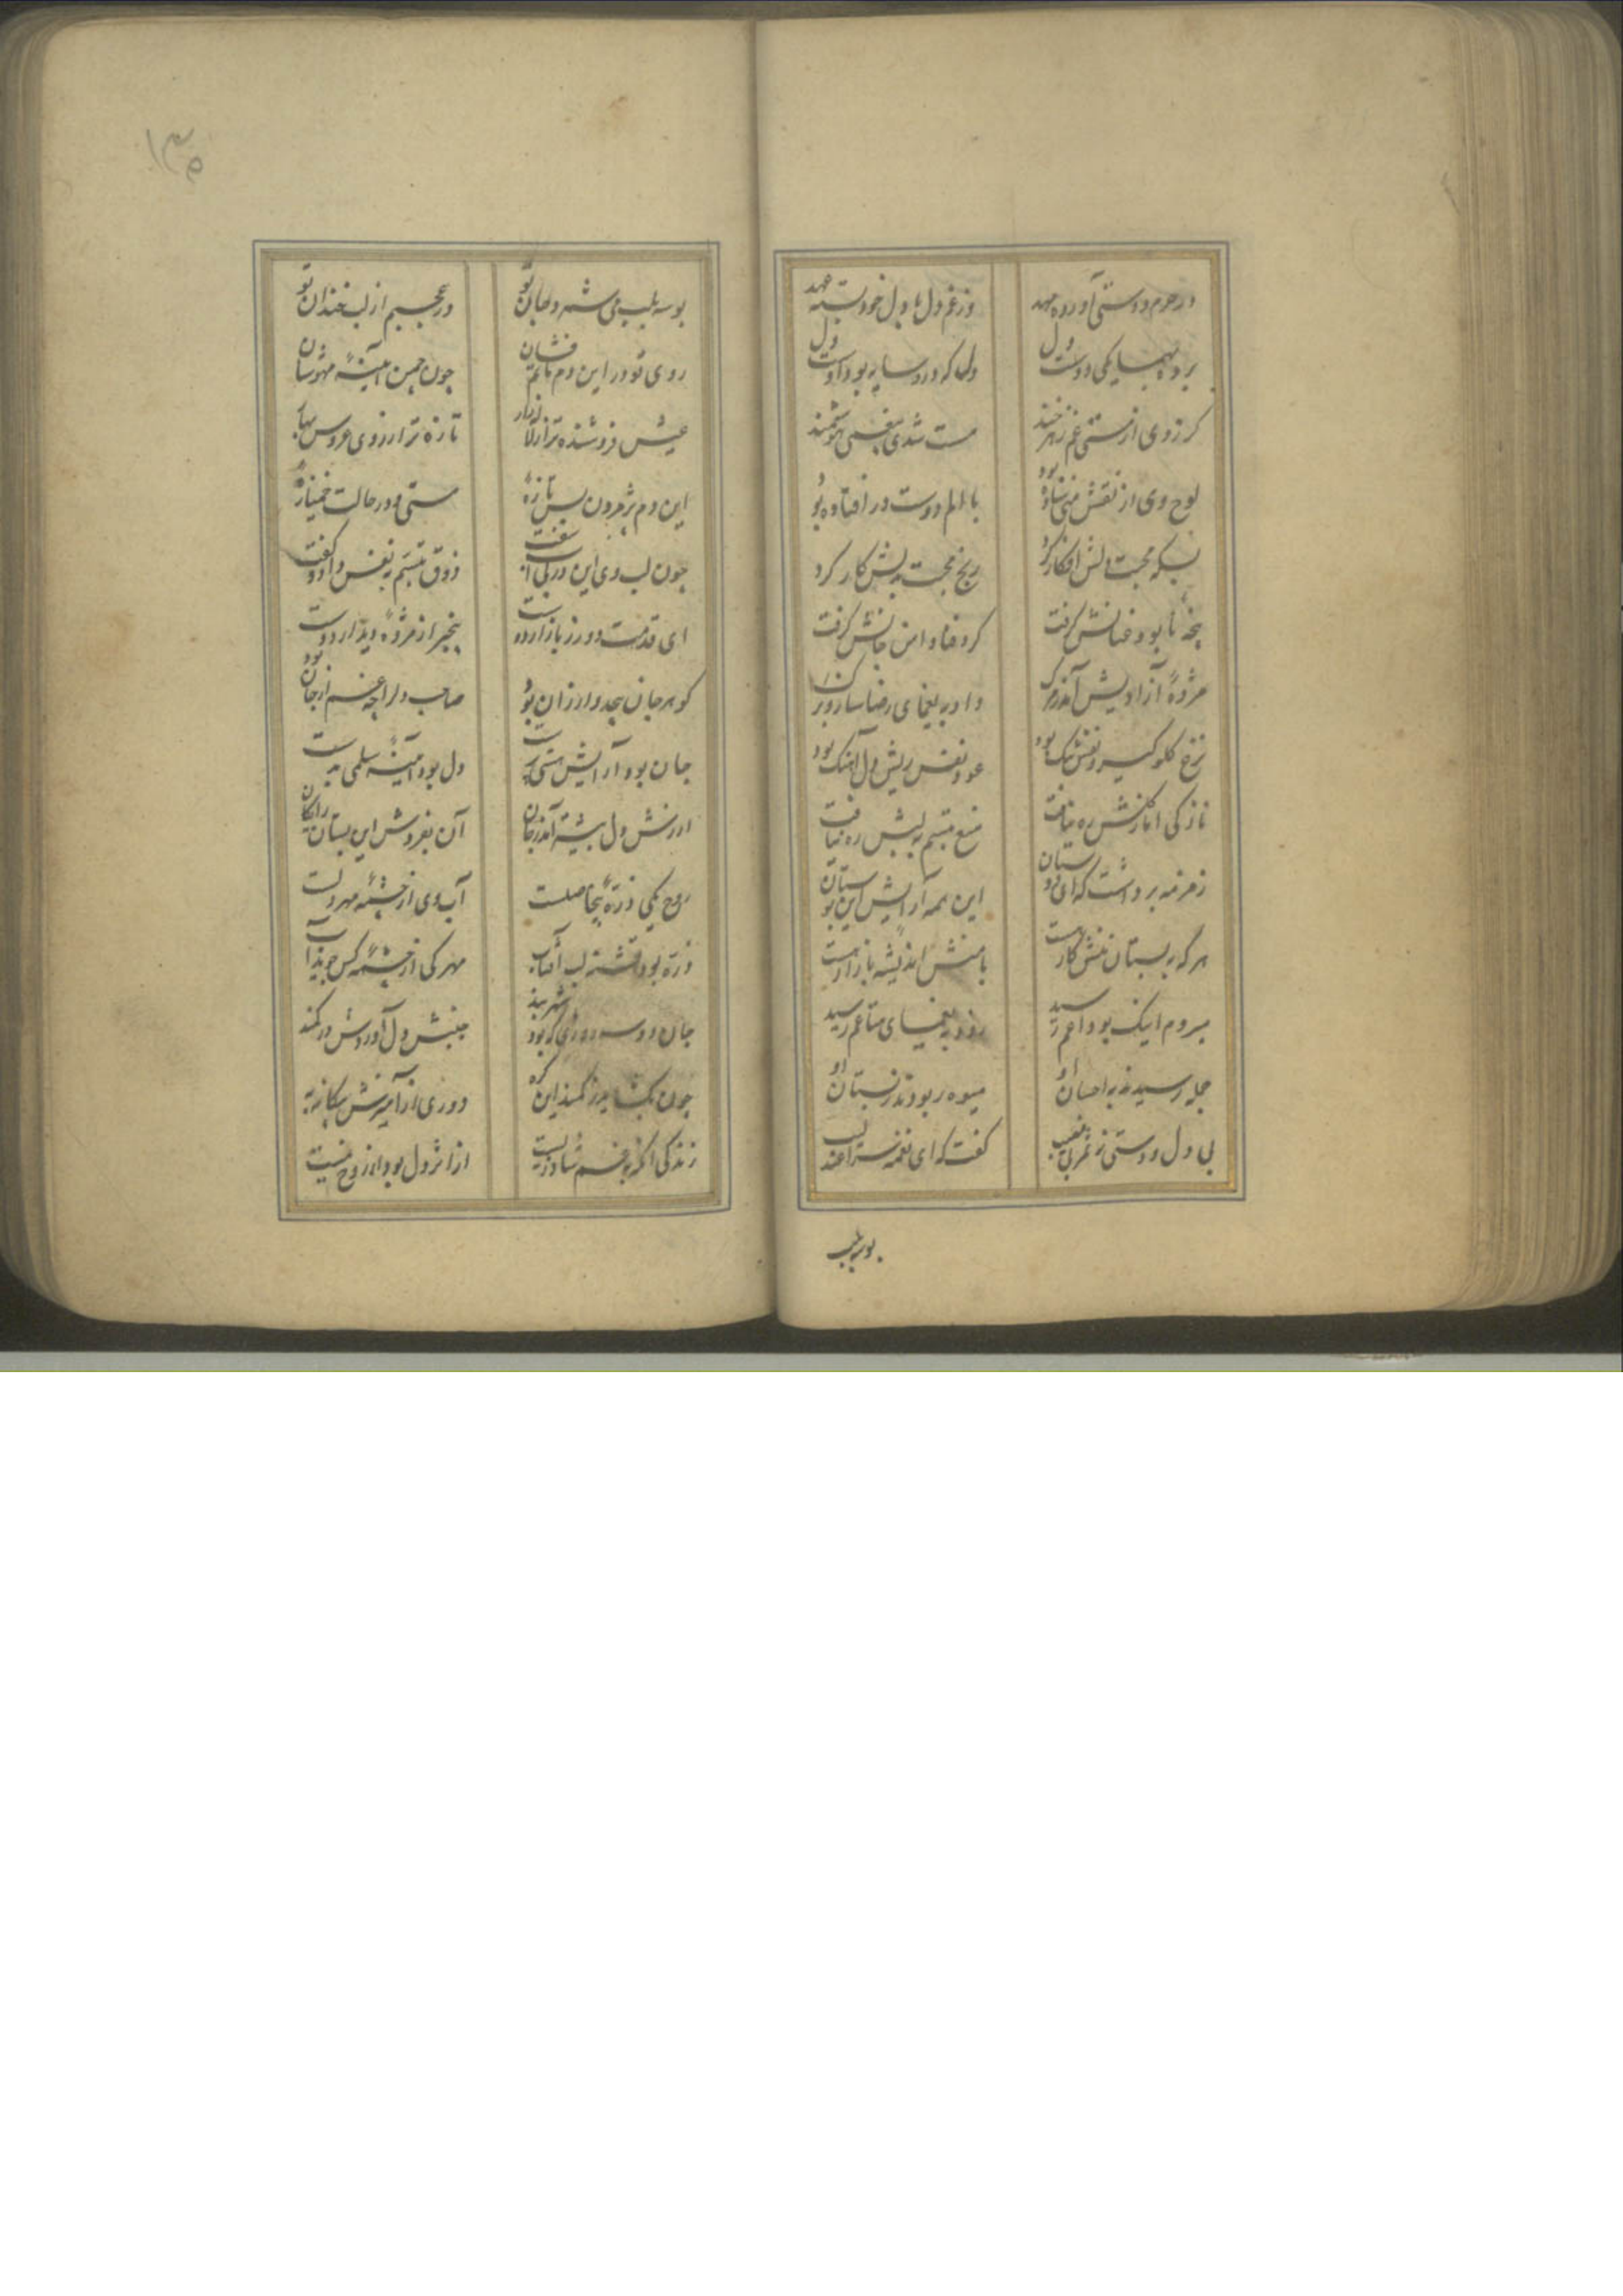 در حرم دوستی آورده مهد
وز غم دل با دل خود بسته عهد
برد به همسایگی دوست دل
دل که در و سایه بود اوست دل
گر زوی از مستی غم زهرخند
مست شدی بی‌غمی هوشمند
لوح وی از نقش منی ساده بود
با الم دوست در افتاده بود
بسکه محبت الش افکار کرد
رنج محبت به لبش کار کرد
پنجه نابود عنانش گرفت
گرد فنا دامن جانش گرفت
مژده آزادیش آمد
داد به یغمای رضا
نزع گلوگیر و نفس تنگ بود
عود نفس ریش دل آهنگ بود
نازکی اما ز منش ره نیافت
منع تبسم به لبش ره نیافت
زمزمه برداشت که ای دوستان
این همه آرایش این بوستان
هر که به بستان منش کار هست
با منش اندیشه بازار هست
میروم اینک بوداعم رسید
زود به یغمای متاعم رسید
جمله رسیدند به احسان او
میوه ربودند ز بستان او
بی دل و دوستی ز غم بی نصیب
گفت که ای نغمه سرا عندلیب
بوسه بلب
بوسه بلب می شمرد جان تو
در عجبم از لب خندان تو
روی تو در این دم ماتم فشان
چون چمن آینه مهوشان
عیش فروشنده تر از
تازه تر از روی عروس بهار
این دم پژمردن بس تازه
مستی و در حالت خمیازه
چون لب وی این در نایاب سفت
ذوق تبسم به نفس داد و گفت
ای قدمت دور ز بازار دوست
بیخبر از مژده دیدار دوست
گوهر جان بیحد و ارزان بود
صاحب دل را چه غم از جان بود
جان بود آرایش هستی
دل بود آینه سلمی پرست
ارزش دل بیشتر آمد ز جان
آن بفروش این بستان رایگان
روح یکی ذره بیحاصلست
آب وی از چشمه مهر دلست
ذره بود تشنه لب آفتاب
مهر کی از چشمه کس جوید آب
جان دو سه روزی که بود شهربند
جنبش دل آوردش در کمند
چون بگشاید ز کمند این گره
دوری از آمیزش بیگانه به
زندگی آنکه به غم شاد زیست
از اثر دل بود از روح نیست